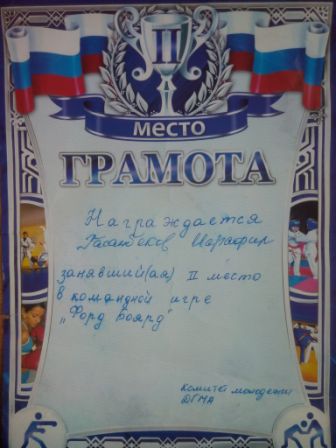 II
МЕСТО
ГРАМОТА
Награждается
занявший(ая) II место
в командной игре
„Форд Боярд"
Комитет молодежи
ДГМА